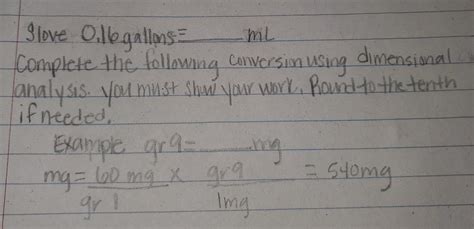 glove 0.16 gallons = ____ mL
Complete the following conversion using dimensional
analysis. you must show your work. Round to the tenth
if needed.
Example gr 9 = ____ mg
mg = 60 mg x gr 9 = 540mg
gr 1 1mg